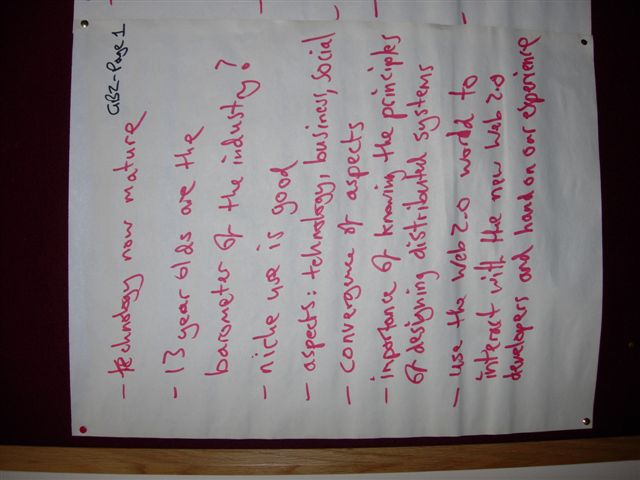 GB2-Page 1
- technology now mature
- 13 year olds are the
barometer of the industry?
- niche use is good
- aspects: technology, business, social
- convergence of aspects
- importance of knowing the principles
of designing distributed systems
- use the Web 2.0 world to
interact with the new Web 2.0
developers and hand on our experience